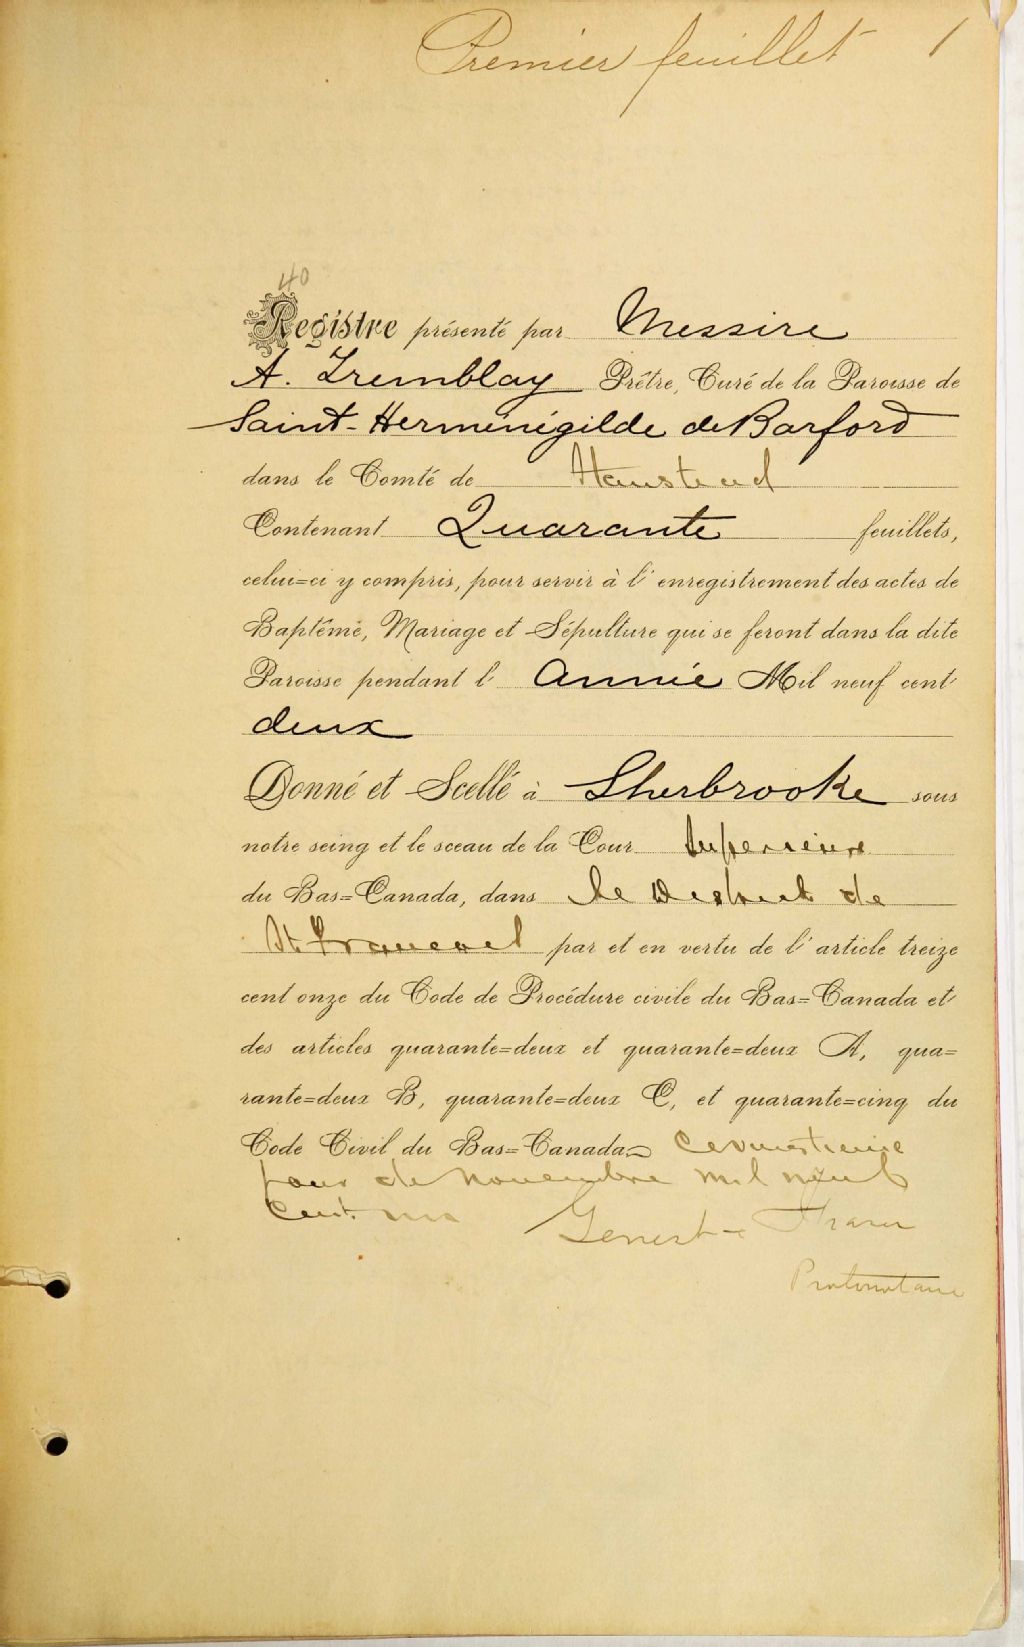 Premier feuillet 1
40
Registre présenté par Messire
A. Tremblay Prêtre, Curé de la Paroisse de
Saint-Herménégilde de Barford
dans le Comté de Stanstead
Contenant Quarante feuillets,
celui=ci y compris, pour servir à l' enregistrement des actes de
Baptême, Mariage et Sépulture qui se feront dans la dite
Paroisse pendant l' année Mil neuf cent
deux
Donné et Scellé à Sherbrooke sous
notre seing et le sceau de la Cour Superieure
du Bas=Canada, dans le District de
St Francois par et en vertu de l' article treize
cent onze du Code de Procédure civile du Bas=Canada et
des articles quarante=deux et quarante=deux A, qua=
rante=deux B, quarante=deux C, et quarante=cinq du
Code Civil du Bas=Canada ce
jour de novembre mil neuf
Cent un Genest & Fraser
Protonotaire